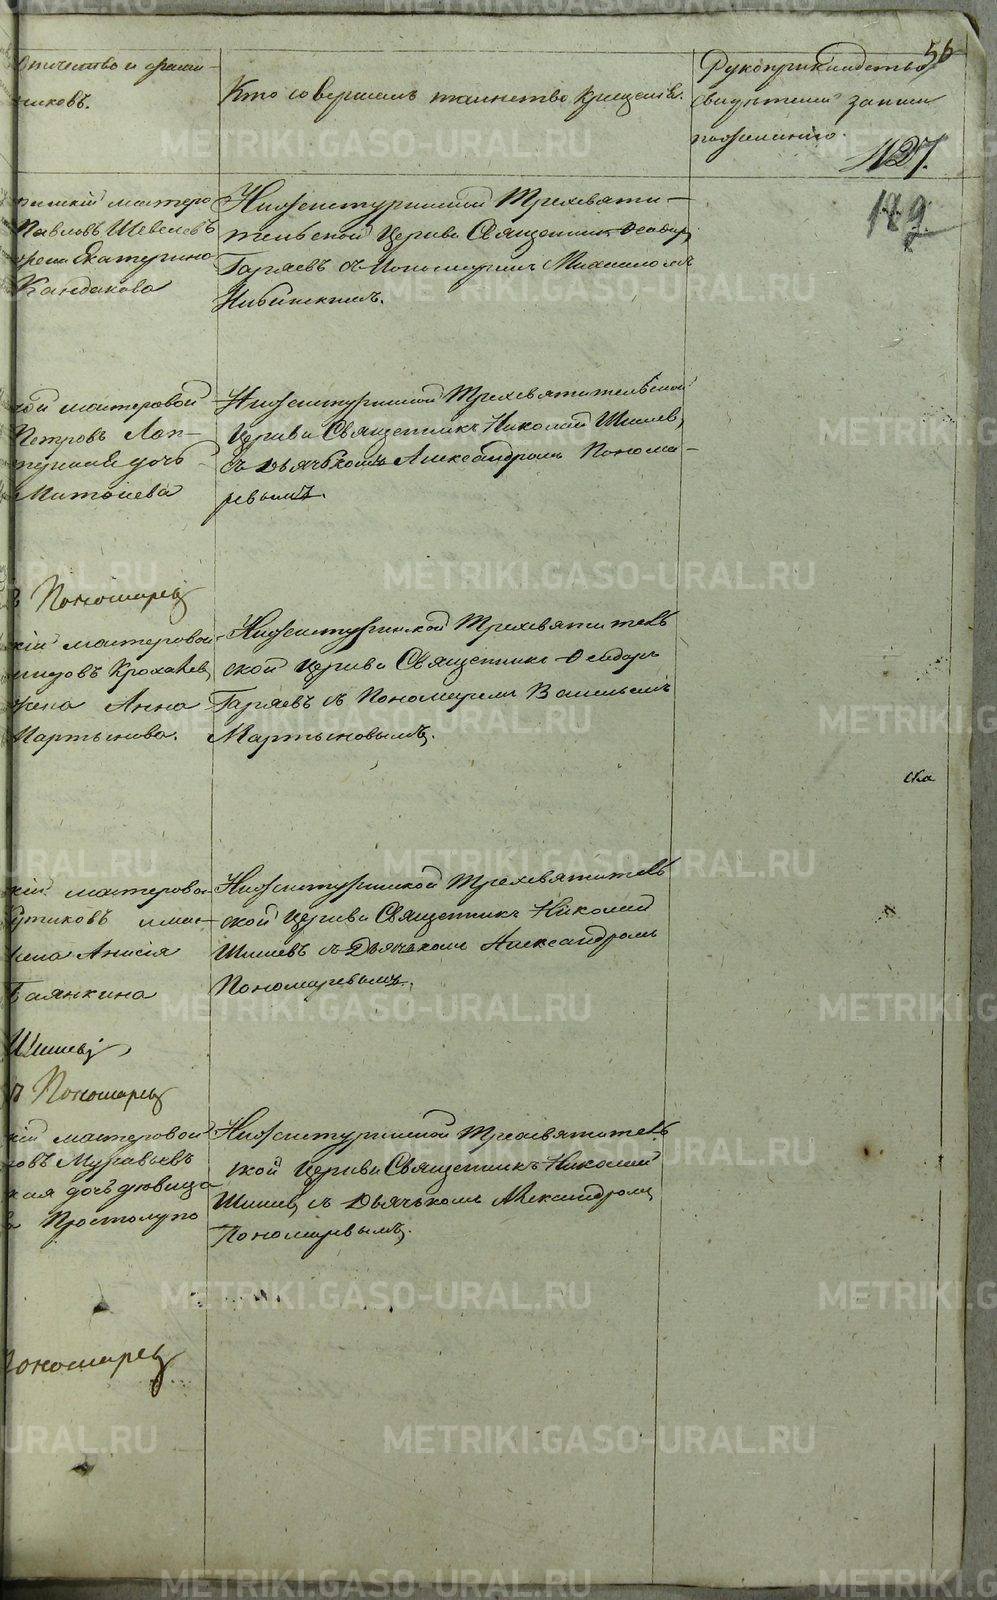 56
отчество и фами-
Кто совершалъ таинство крещенія.
Рукоприкладство
свидѣтелей записи
по желанію.
127.
129.
мастеро
Павловъ Шевелевъ
Екатерина
Кандакова
Нижнетуринской Трехсвяти-
тельской Церкви Священникъ Ѳеодоръ
Гаряевъ съ Пономаремъ Михаиломъ
мастеровой
Петровъ Лап-
дочь
Нижнетуринской Трехсвятительской
Церкви Священникъ Николай Шишевъ
съ Дьячкомъ Александромъ Понома-
ревымъ.
Пономаревъ
кій мастеровой
Крохалевъ
жена Анна
Мартынова.
Нижнетуринской Трехсвятитель
ской Церкви Священникъ Ѳеодоръ
Гаряевъ съ Пономаремъ Васильемъ
Мартыновымъ.
ска
кій мастерово
жена Анисія
Баянкина
Нижнетуринской Трехсвятитель
ской Церкви Священникъ Николай
Шишевъ съ Дьячкомъ Александромъ
Пономаревымъ.
Шишевъ
Пономаревъ
кій мастеровой
Муравьевъ
кая дочь дѣвица
Простолупо
Нижнетуринской Трехсвятитель
ской Церкви Священникъ Николай
Шишевъ съ Дьячкомъ Александромъ
Пономаревымъ.
Пономаревъ
METRIKI.GASO-URAL.RU